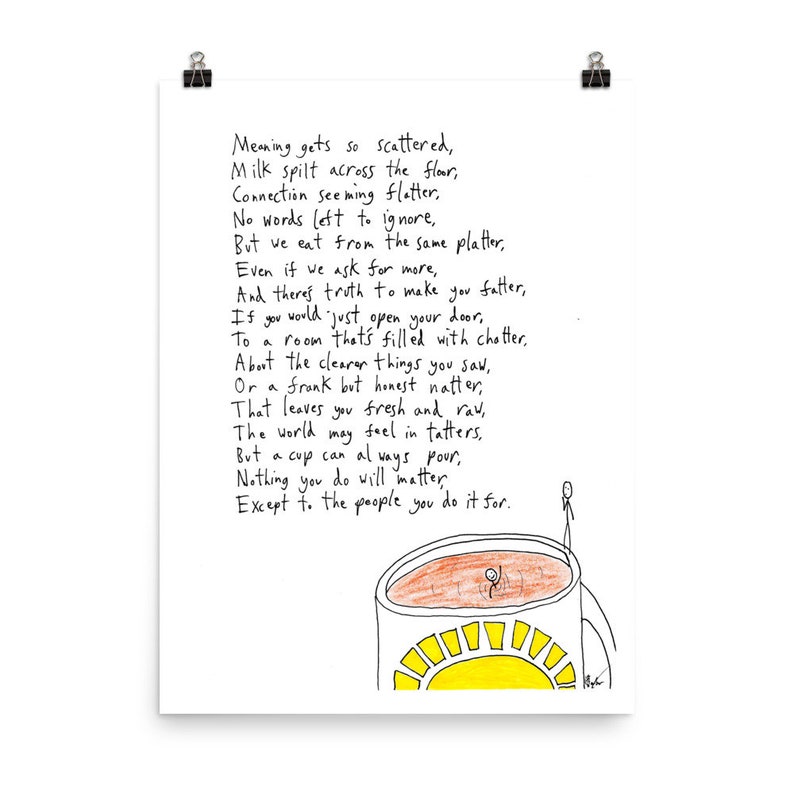 Meaning gets so scattered,
Milk spilt across the floor,
Connection seeming flatter,
No words left to ignore,
But we eat from the same platter,
Even if we ask for more,
And there's truth to make you fatter,
If you would just open your door,
To a room that's filled with chatter,
About the clearer things you saw,
Or a frank but honest natter,
That leaves you fresh and raw,
The world may feel in tatters,
But a cup can always pour,
Nothing you do will matter,
Except to the people you do it for.